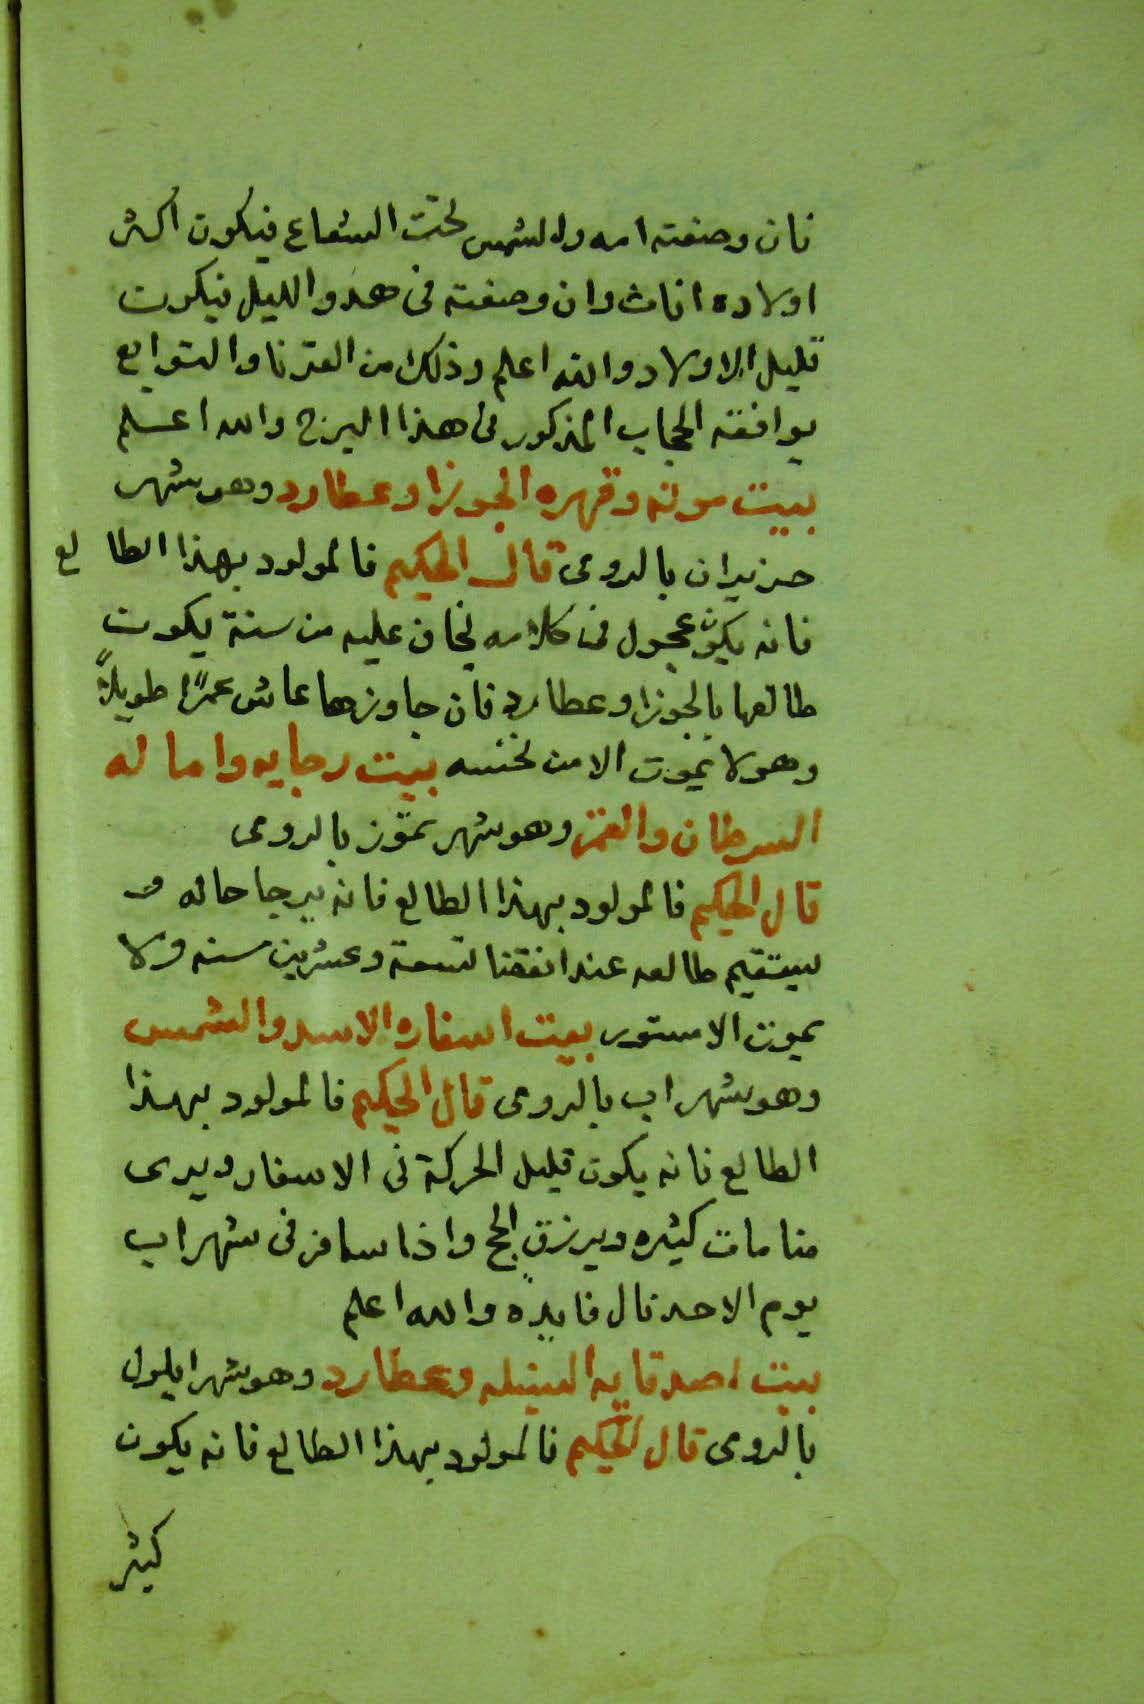 فان وضعته امه والشمس تحت الشعاع فيكون اكثر
اولاده اناث وان وضعته فى هدو الليل فيكون
قليل الاولاد والله اعلم وذلك من القرنا والتوابع
يوافقه الحجاب المذكور فى هذا البرج والله اعلم
بيت موته وقهره الجوزا وعطارد وهو شهر
حزيران بالرومى قال الحكيم فالمولود بهذا الطالع
فانه يكون عجول فى كلامه يخاف عليه من سنة يكون
طالعها بالجوزا وعطارد فان جاوزها عاش عمرًا طويلاً
وهو لا يموت الا من
بيت رجايه واماله
السرطان والقمر وهو شهر تموز بالرومى
قال الحكيم فالمولود بهذا الطالع فانه يرجا حاله و
يستقيم طالعه عند انقضا تسعة وعشرين سنه ولا
يموت الا مستور بيت اسفاره الاسد والشمس
وهو شهر اب بالرومى قال الحكيم فالمولود بهذا
الطالع فانه يكون قليل الحركة فى الاسفار ويرى
منامات كثيره ويرزق الحج واذا سافر فى شهر اب
يوم الاحد نال فايدة والله اعلم
بيت اصدقايه السنبله وعطارد وهو شهر ايلول
بالرومى قال الحكيم فالمولود بهذا الطالع فانه يكون
كثير